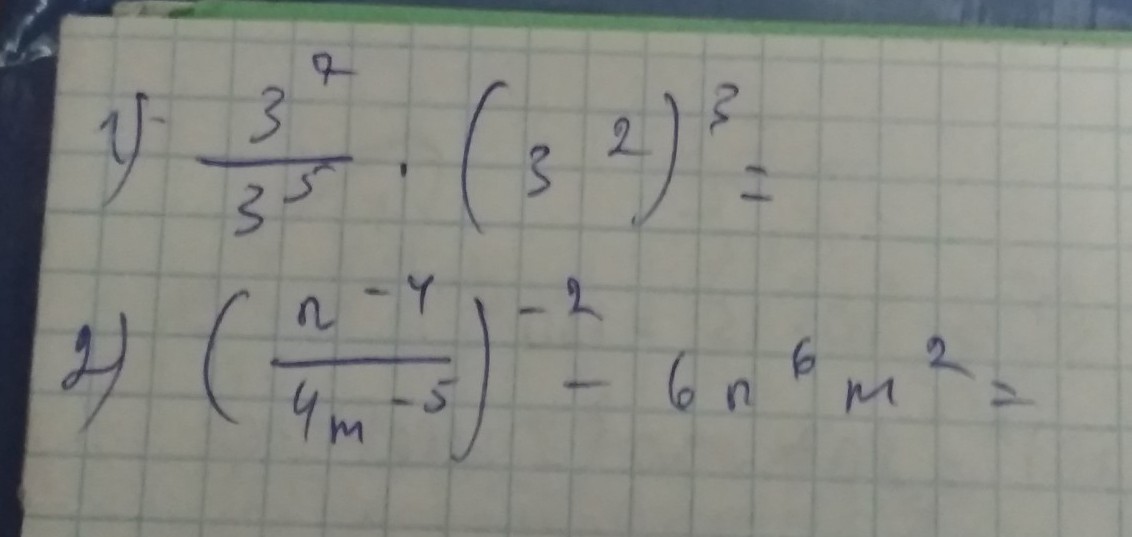 1) 3^7 / 3^5 · (3^2)^3 =
2) (n^-4 / 4m^-5)^-2 - 6n^6m^2 =